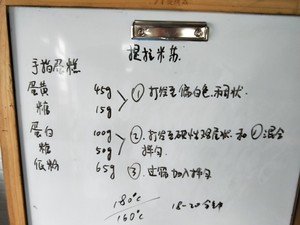 提拉米苏
手指蛋糕
蛋黄 45g
糖 15g
① 打发至偏白色.稠状.
蛋白 100g
糖 50g
② 打发至硬性.鸡尾状.和①混合拌匀.
低粉 65g ③ 过筛加入拌匀
180°C
160°C
18-20分钟